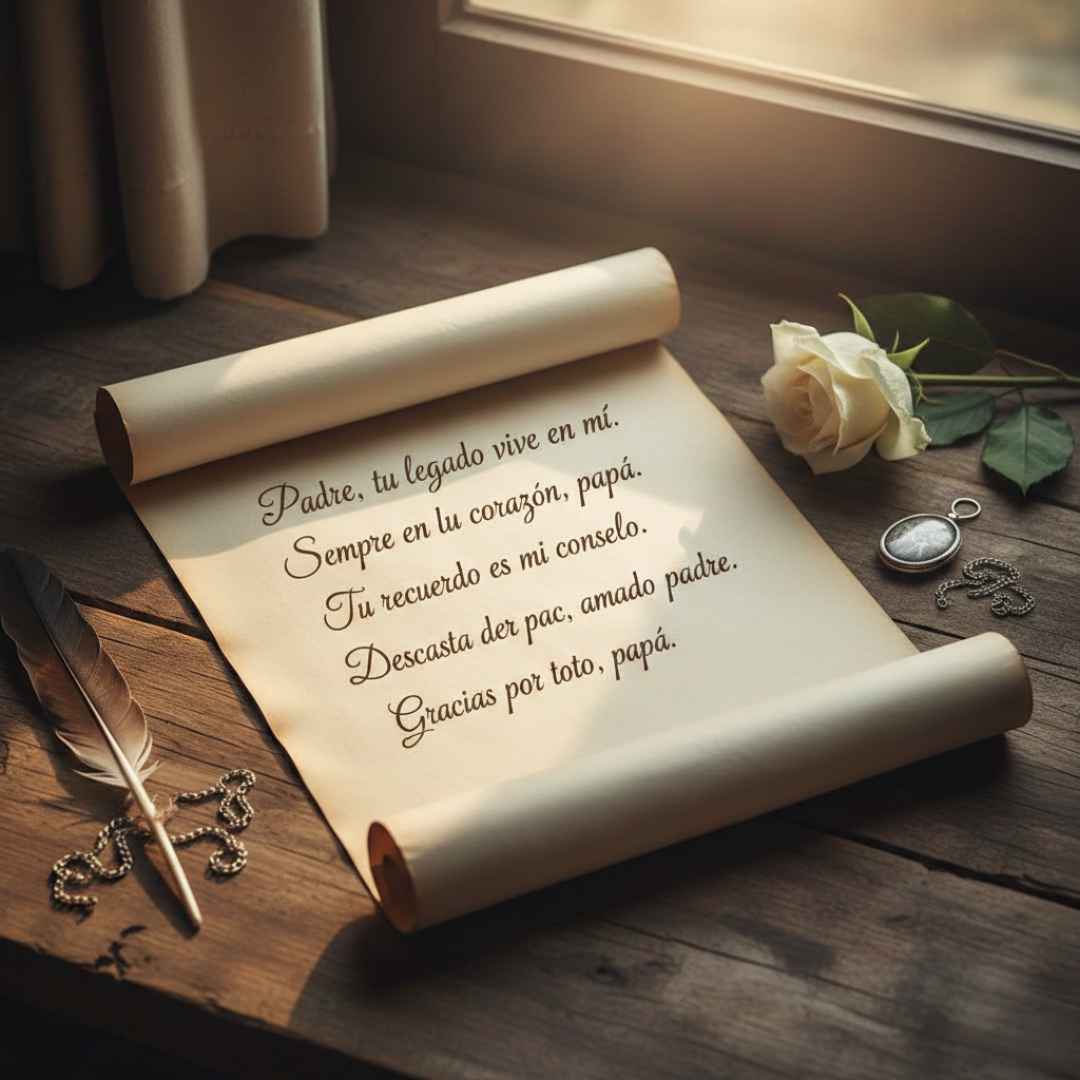 Padre, tu legado vive en mí.
Sempre en lu corazón, papá.
Tu recuerdo es mi conselo.
Descasta der pac, amado padre.
Gracias por toto, papá.